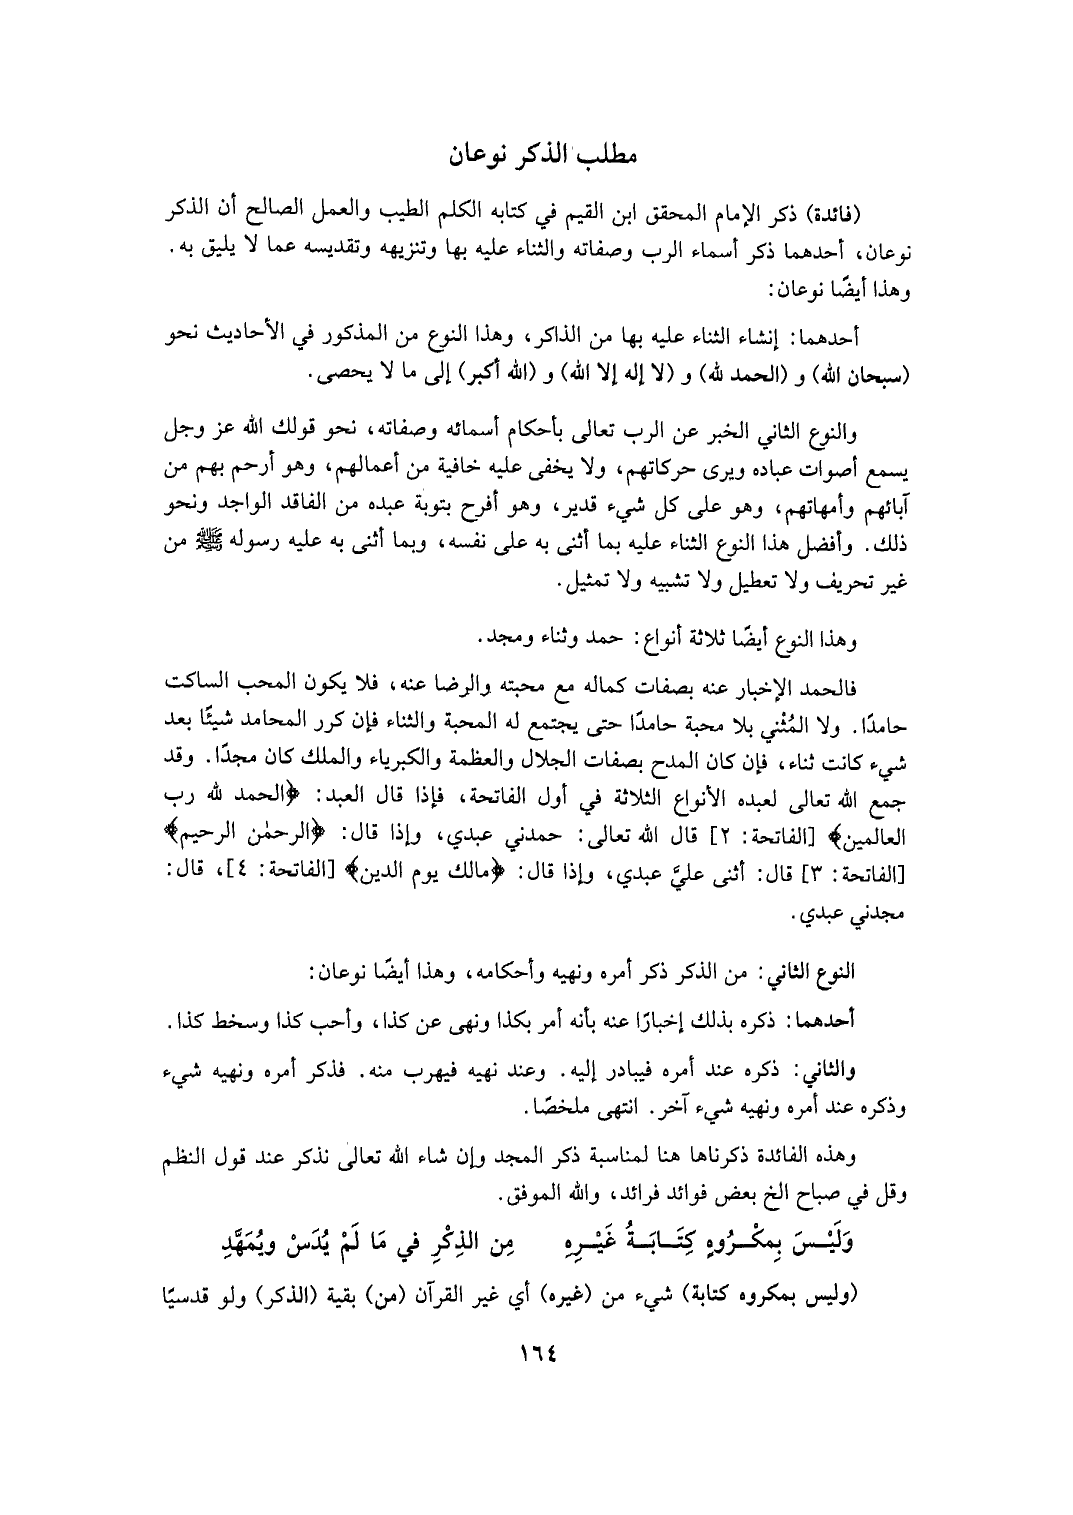 مطلب الذكر نوعان
(فائدة) ذكر الإمام المحقق ابن القيم في كتابه الكلم الطيب والعمل الصالح أن الذكر
نوعان، أحدهما ذكر أسماء الرب وصفاته والثناء عليه بها وتنزيهه وتقديسه عما لا يليق به.
وهذا أيضًا نوعان:
أحدهما: إنشاء الثناء عليه بها من الذاكر، وهذا النوع من المذكور في الأحاديث نحو
(سبحان الله) و (الحمد لله) و (لا إله إلا الله) و (الله أكبر) إلى ما لا يحصى.
والنوع الثاني الخبر عن الرب تعالى بأحكام أسمائه وصفاته، نحو قولك الله عز وجل
يسمع أصوات عباده ويرى حركاتهم، ولا يخفى عليه خافية من أعمالهم، وهو أرحم بهم من
آبائهم وأمهاتهم، وهو على كل شيء قدير، وهو أفرح بتوبة عبده من الفاقد الواجد ونحو
ذلك. وأفضل هذا النوع الثناء عليه بما أثنى به على نفسه، وبما أثنى به عليه رسوله ﷺ من
غير تحريف ولا تعطيل ولا تشبيه ولا تمثيل.
وهذا النوع أيضًا ثلاثة أنواع: حمد وثناء ومجد.
فالحمد الإخبار عنه بصفات كماله مع محبته والرضا عنه، فلا يكون المحب الساكت
حامدًا. ولا المُثْني بلا محبة حامدًا حتى يجتمع له المحبة والثناء فإن كرر المحامد شيئًا بعد
شيء كانت ثناء، فإن كان المدح بصفات الجلال والعظمة والكبرياء والملك كان مجدًا. وقد
جمع الله تعالى لعبده الأنواع الثلاثة في أول الفاتحة، فإذا قال العبد: ﴿الحمد لله رب
العالمين﴾ [الفاتحة: ٢] قال الله تعالى: حمدني عبدي، وإذا قال: ﴿الرحمٰن الرحيم﴾
[الفاتحة: ٣] قال: أثنى عليَّ عبدي، وإذا قال: ﴿مالك يوم الدين﴾ [الفاتحة: ٤]، قال:
مجدني عبدي.
النوع الثاني: من الذكر ذكر أمره ونهيه وأحكامه، وهذا أيضًا نوعان:
أحدهما: ذكره بذلك إخبارًا عنه بأنه أمر بكذا ونهى عن كذا، وأحب كذا وسخط كذا.
والثاني: ذكره عند أمره فيبادر إليه. وعند نهيه فيهرب منه. فذكر أمره ونهيه شيء
وذكره عند أمره ونهيه شيء آخر. انتهى ملخصًا.
وهذه الفائدة ذكرناها هنا لمناسبة ذكر المجد وإن شاء الله تعالى نذكر عند قول النظم
وقل في صباح الخ بعض فوائد فرائد، والله الموفق.
وَلَيْسَ بِمكْرُوهٍ كِتَابَةُ غَيْرِهِ مِن الذِكْرِ في مَا لَمْ يُدَسْ ويُمَهَّدِ
(وليس بمكروه كتابة) شيء من (غيره) أي غير القرآن (من) بقية (الذكر) ولو قدسيًا
١٦٤